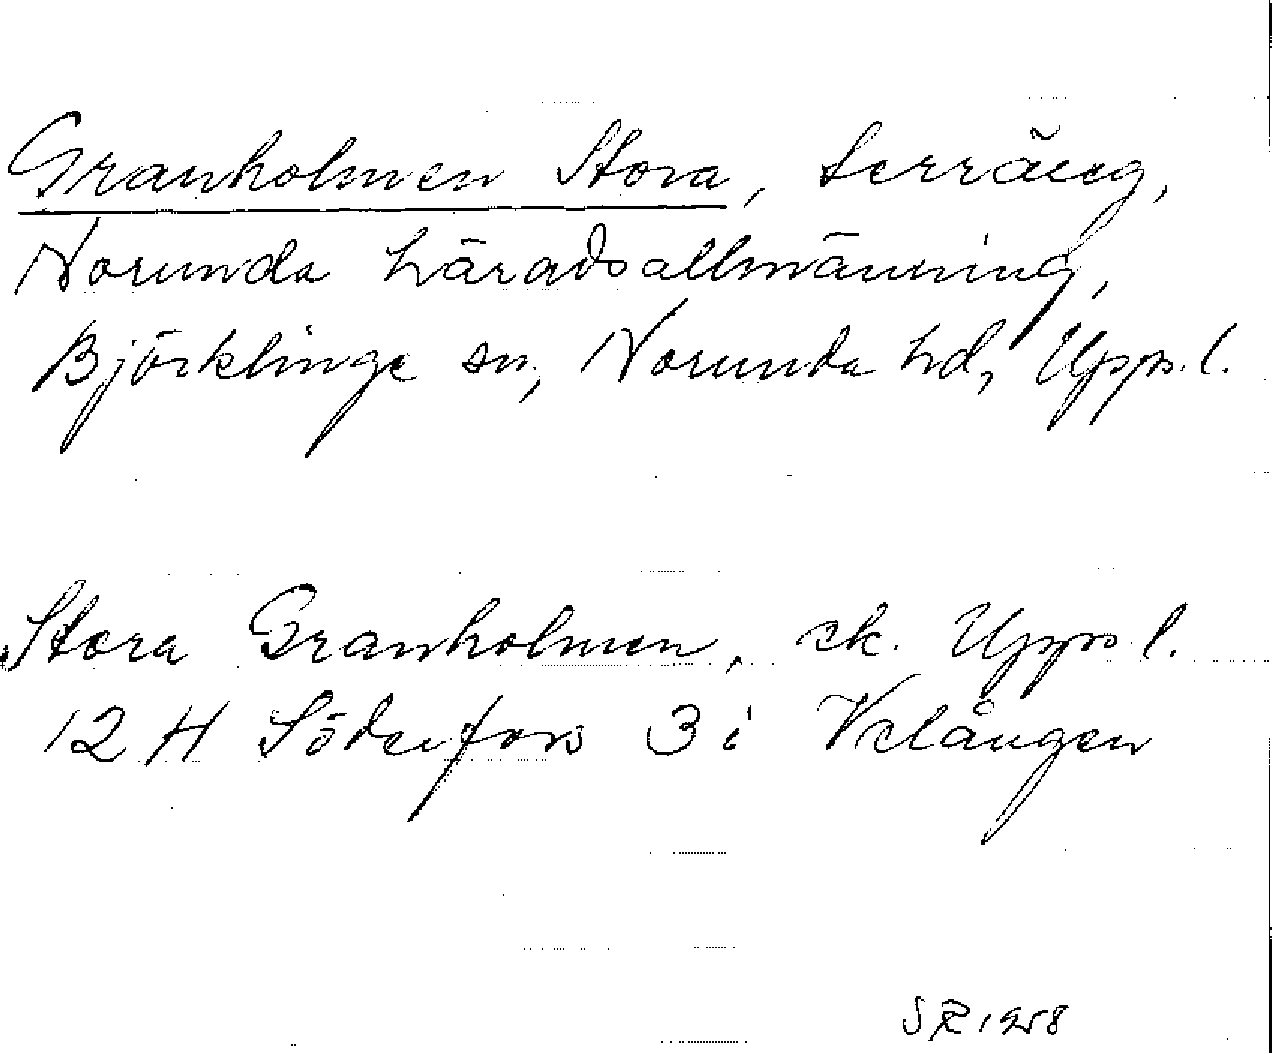 Granholmen Stora, terräng,
Norunda häradsallmänning,
Björklinge sn, Norunda hd, Uppl.
Stora Granholmen, ek. Uppl.
12 H Söderfors 3 i Velången
SR 1958